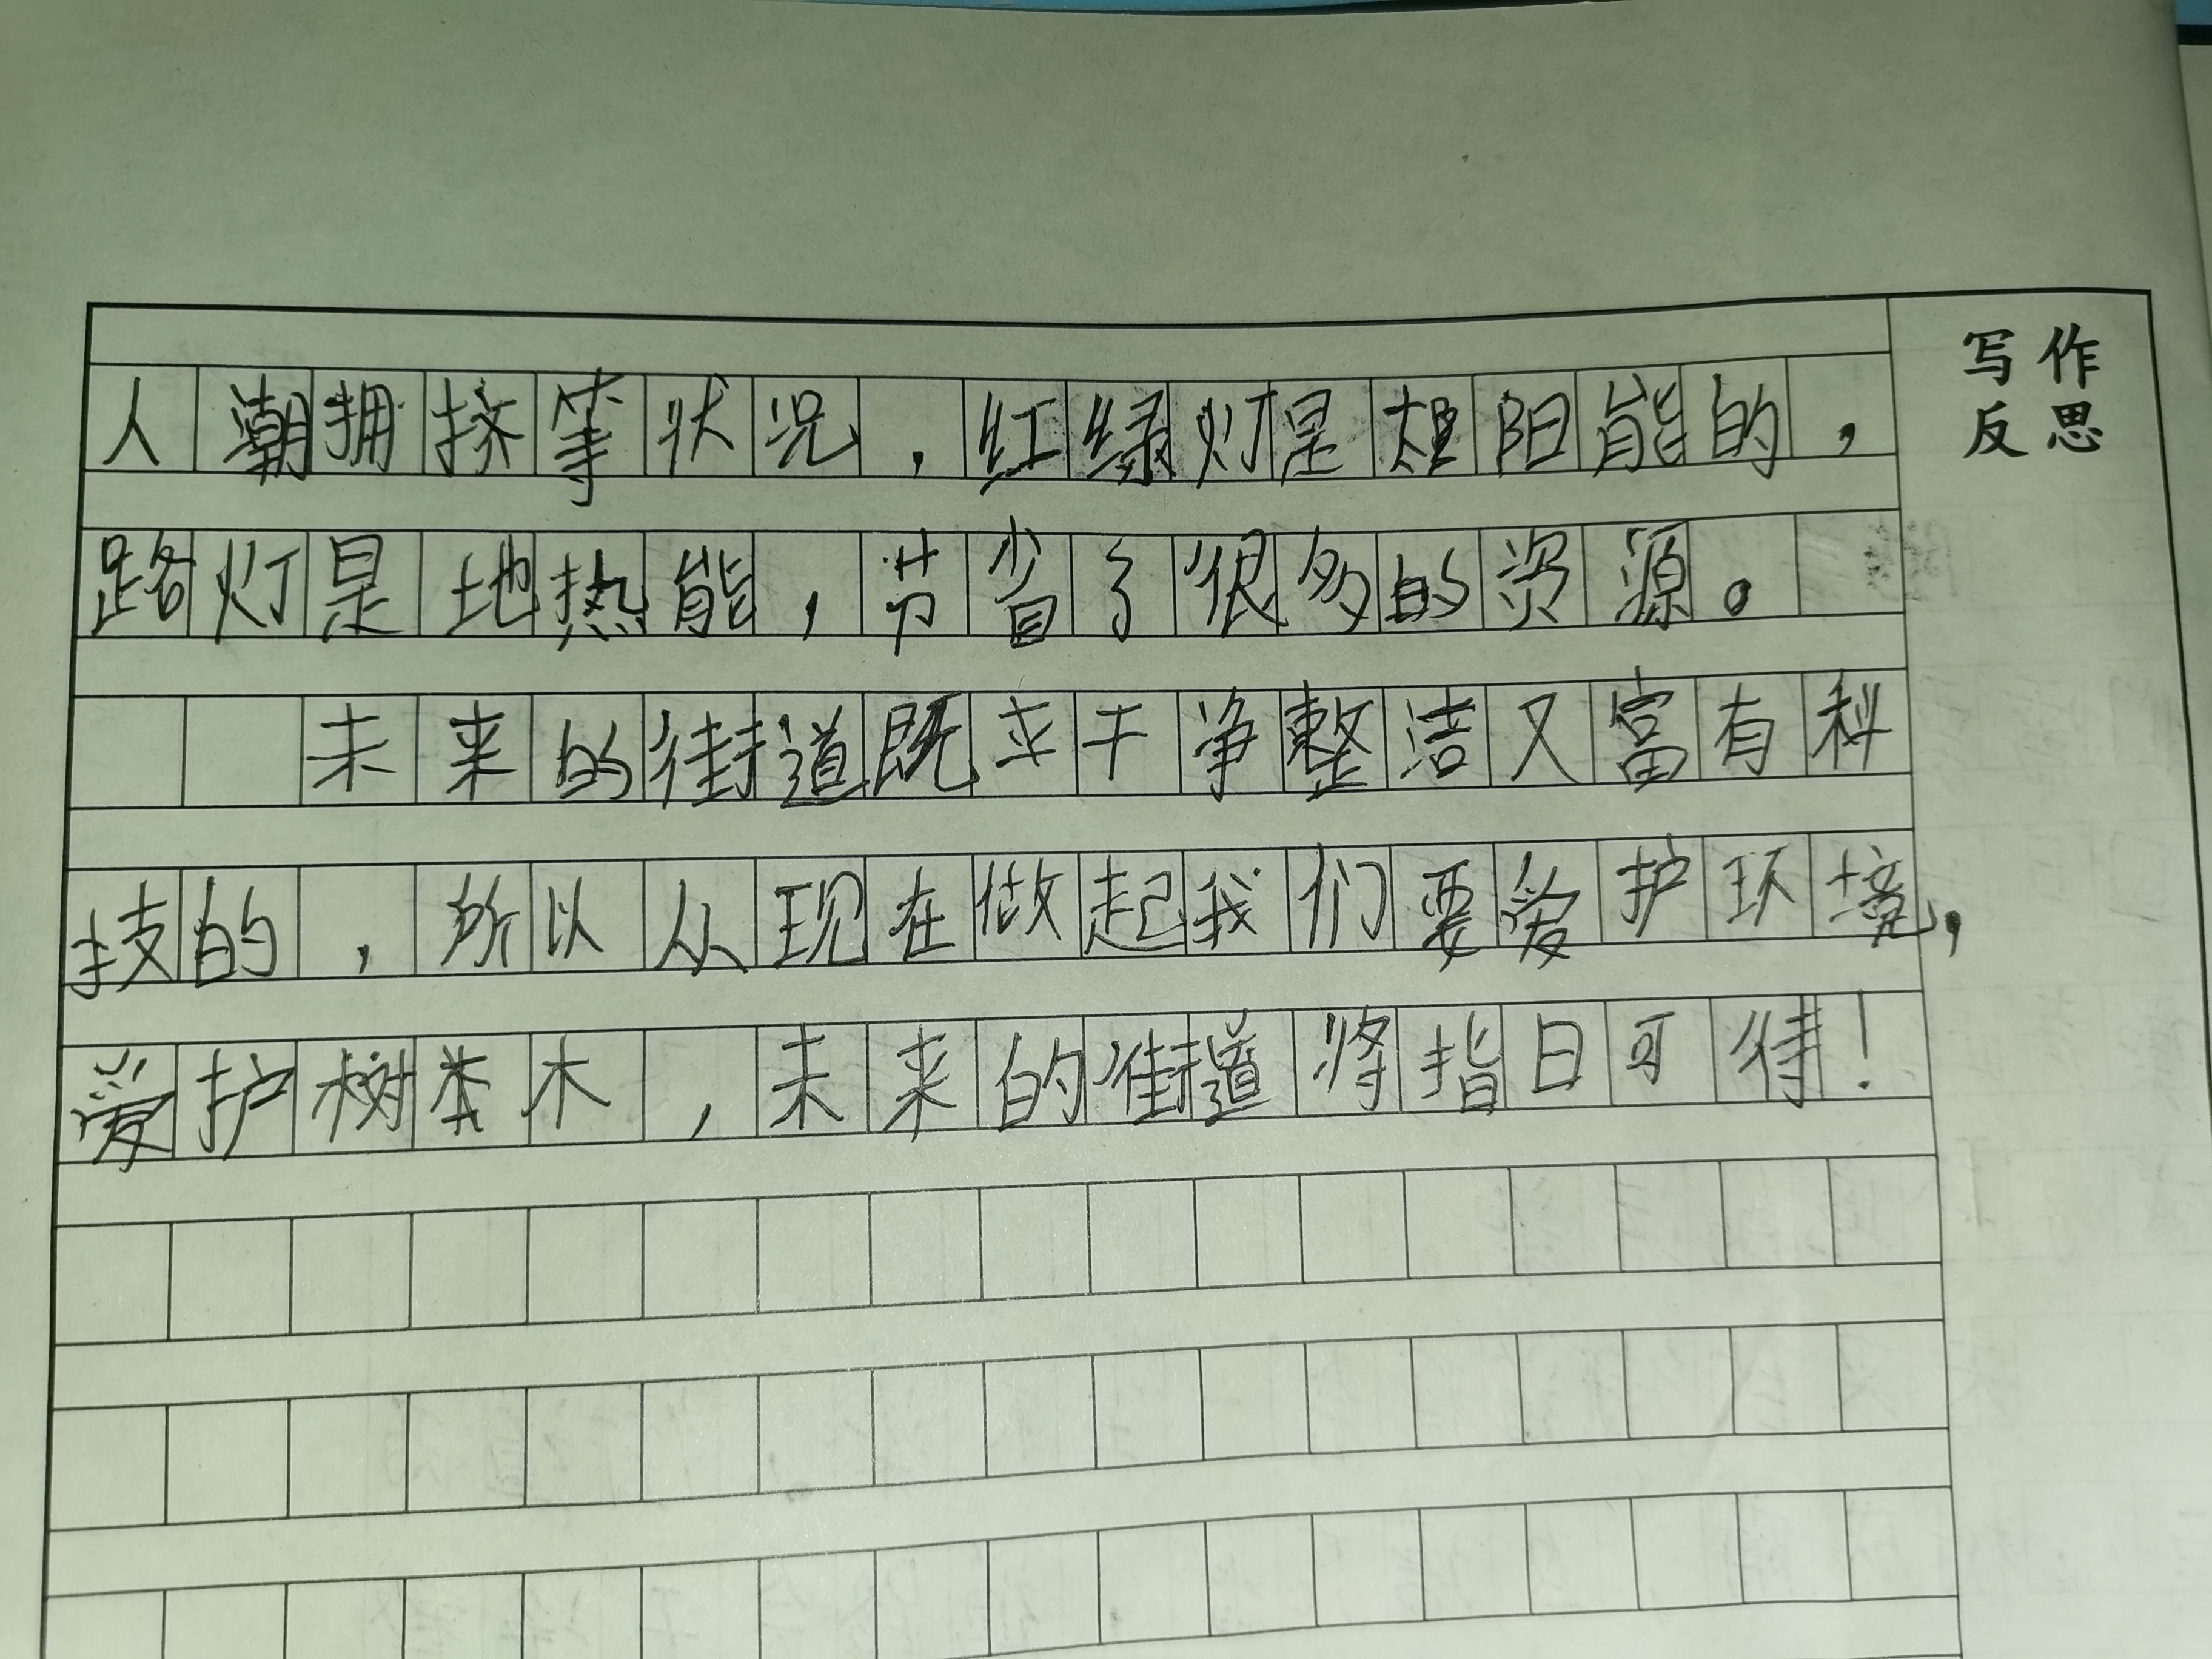 人潮拥挤等状况，红绿灯是太阳能的，
路灯是地热能，节省了很多的资源。
未来的街道既干净整洁又富有科
技的，所以从现在做起我们要爱护环境，
爱护树木，未来的街道将指日可待！
写作
反思